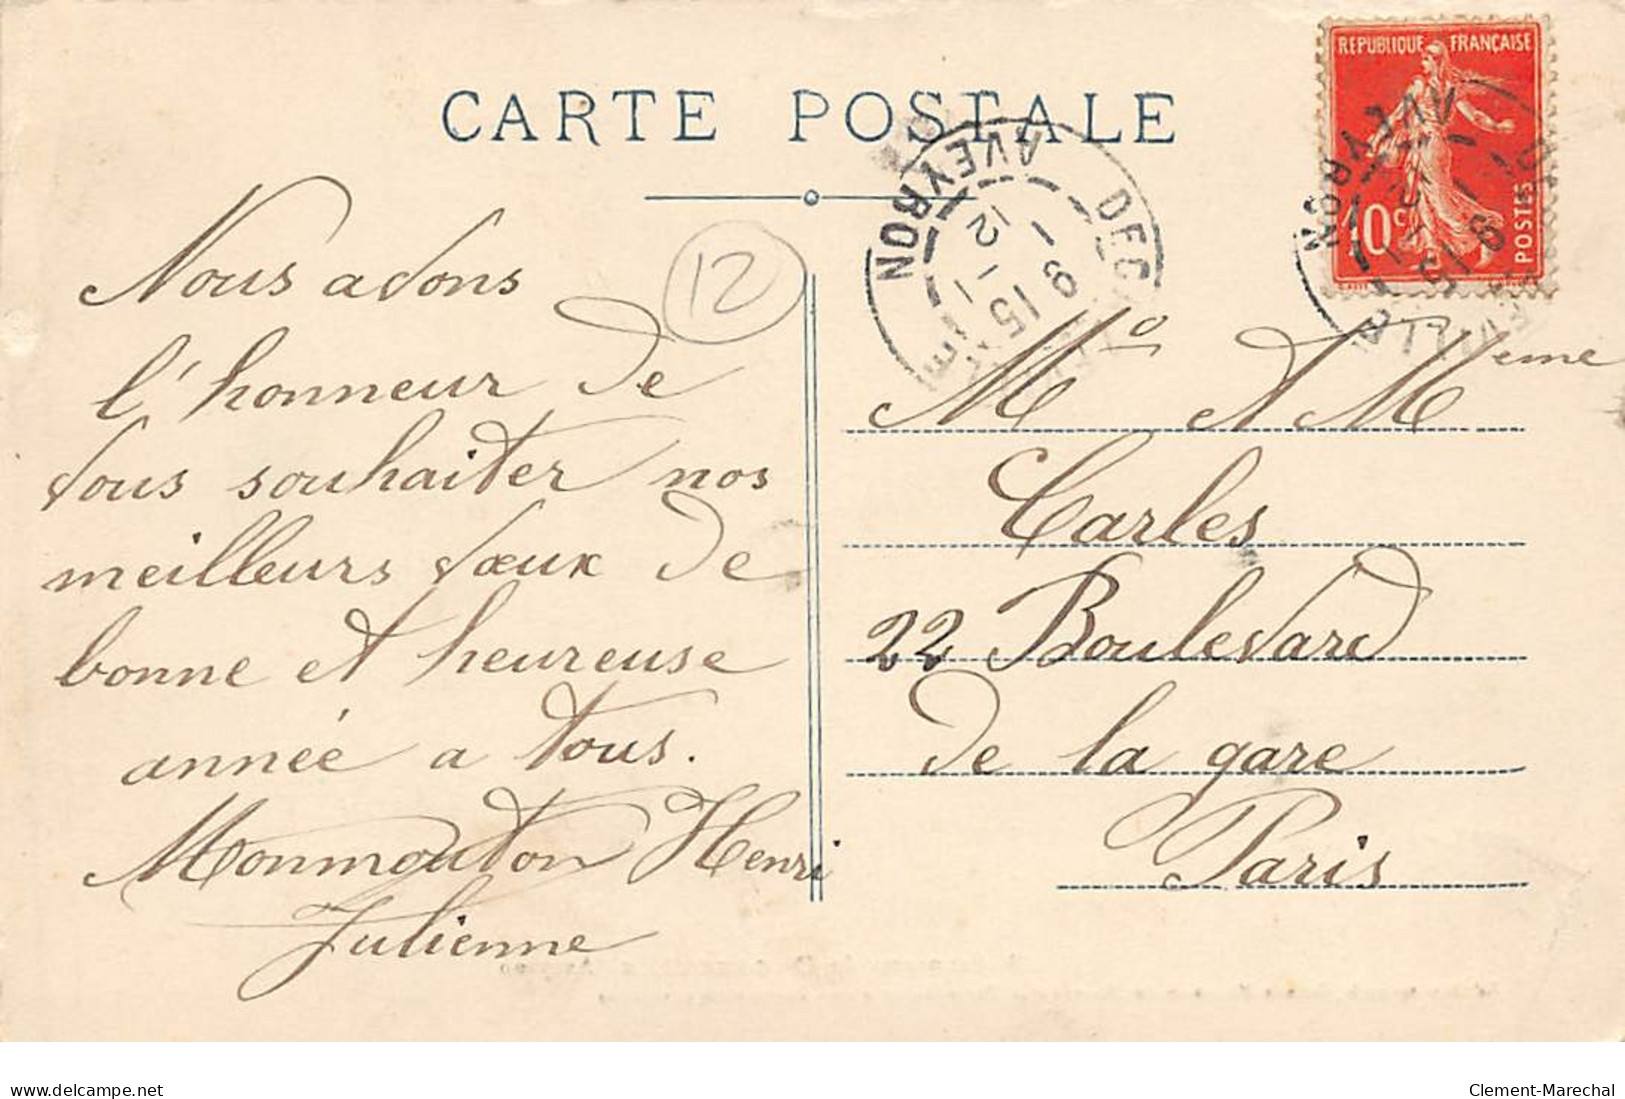 CARTE POSTALE
REPUBLIQUE FRANÇAISE
10c
POSTES
AVEYRON
AVEYRON
12
Nous avons
l'honneur de
vous souhaiter nos
meilleurs vœux de
bonne et heureuse
année a tous.
Monmouton Henri
Julienne
Mr et Meme
Carles
22 Boulevard
de la gare
Paris
delcampe.net
Clement-Marechal